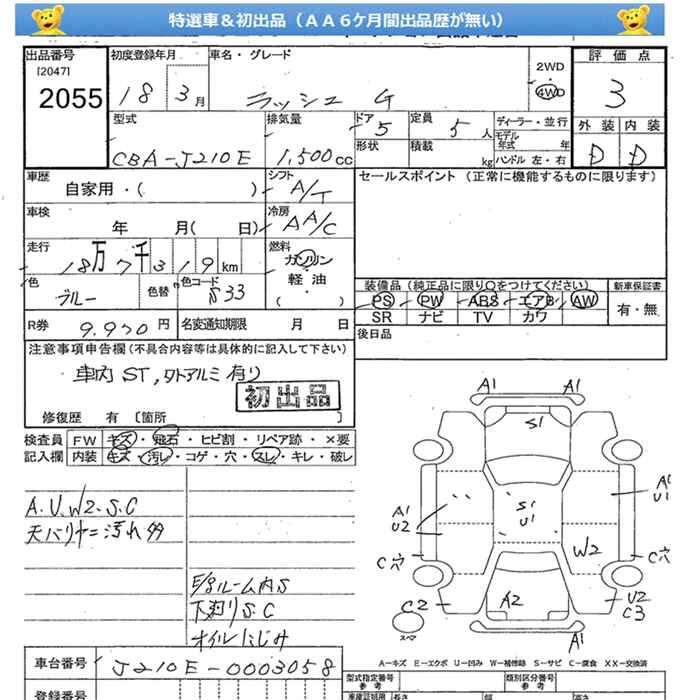 特選車&初出品（ＡＡ６ケ月間出品歴が無い）
出品番号
[2047]
2055
初度登録年月
18 3月
車名・グレード
ラッシュ G
2WD
4WD
評価点
3
外装 内装
D D
型式
CBA-J210E
排気量
1,500cc
ドア
5
形状
定員
5人
積載
kg
ディーラー・並行
モデル
年式 年
ハンドル 左・右
車歴
自家用・( )
シフト
A/T
車検
年 月( 日)
冷房
AA/C
走行
18万7千319km
燃料
ガソリン
軽・油
( )
色
ブルー
色替
色コード
S33
R券
9,970円
名変通知期限 月 日
セールスポイント（正常に機能するものに限ります）
装備品（純正品に限り〇をつけてください）
PS PW ABS エアB AW
SR ナビ TV カワ
新車保証書
有・無
後日品
注意事項申告欄(不具合内容等は具体的に記入して下さい)
車内ST,タトアルミ有り
初出品
修復歴 有 〔箇所 〕
検査員
記入欄
FW キズ・飛石・ヒビ割・リペア跡・×要
内装 キズ・汚レ・コゲ・穴・スレ・キレ・破レ
A.U.W2.S.C
天バリヤニ汚れ多
E/gルーム内S
下廻りS.C
オイルにじみ
A1 A1
S1
A1
U2
S1
U1
A1
U1
W2
C穴 C穴
C2
A2
U2
C3
スペア
A1
A-キズ E-エクボ U-凹み W-補修跡 S-サビ C-腐食 XX-交換済
車台番号
J210E-0003058
登録番号
型式指定番号
参考
類別区分番号
参考
車庫証明用
長さ
幅
高さ